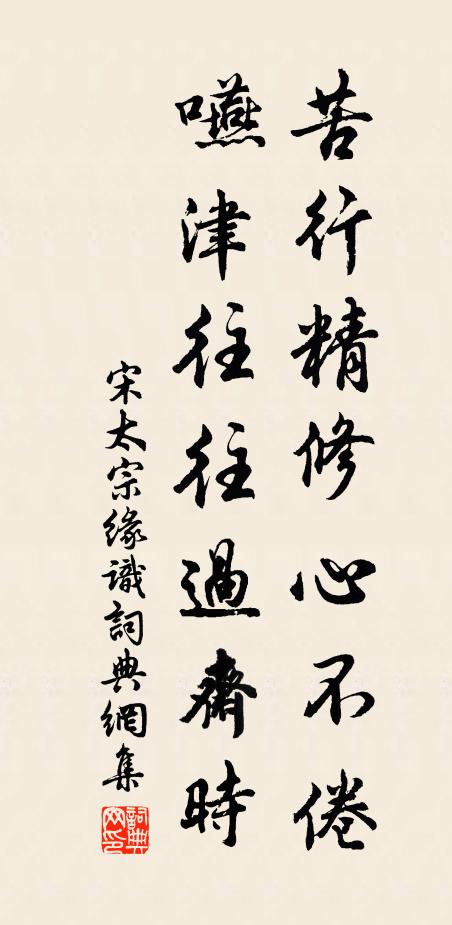 苦行精修心不倦
嚥津往往過齋時
宋太宗緣識詞典網集
詞典網印